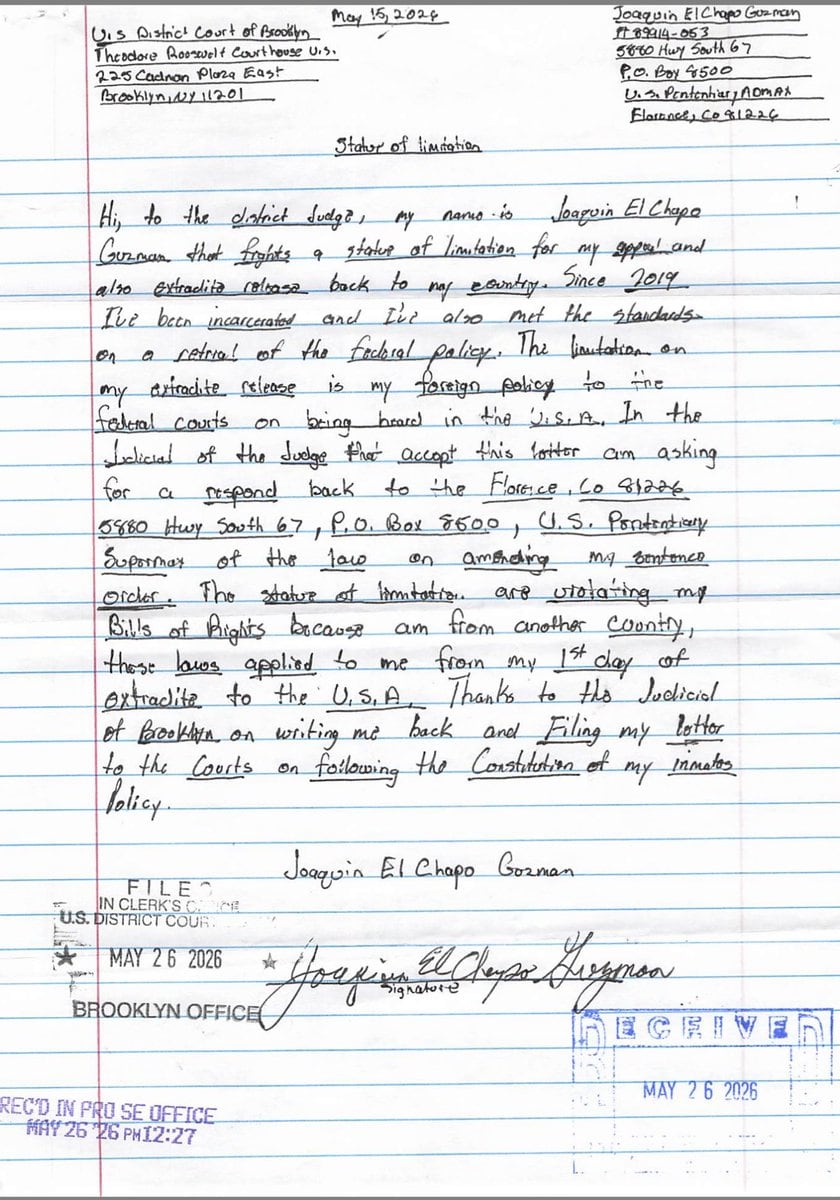 May 15, 2026
U.S District Court of Brooklyn
Theodore Roosevelt Courthouse U.S.
225 Cadman Plaza East
Brooklyn, NY 11201
Joaquin El Chapo Guzman
# 89914-053
5880 Hwy South 67
P.O. Box 8500
U.S. Pentenhiary ADMAX
Florence, Co 81226
Statue of limitation
Hi, to the district Judge, my name is Joaquin El Chapo
Guzman that fights a statue of limitation for my appeal and
also extradite release back to my country. Since 2019
I've been incarcerated and I've also met the standards
on a retrial of the federal policy. The limitation on
my extradite release is my foreign policy to the
federal courts on being heard in the U.S.A. In the
Judicial of the Judge that accept this letter am asking
for a respond back to the Florence, Co 81226
5880 Hwy South 67, P.O. Box 8500, U.S. Pentenhiary
Supermax of the law on amending my sentence
order. The statue of limitation are violating my
Bills of Rights because am from another country,
those laws applied to me from my 1st day of
extradite to the U.S.A. Thanks to the Judicial
of Brooklyn on writing me back and Filing my letter
to the Courts on following the Constitution of my inmates
Policy.
Joaquin El Chapo Gozman
FILE
IN CLERK'S
U.S. DISTRICT COUR
★ MAY 26 2026 ★
BROOKLYN OFFICE
Joaquin El Chapo Guzman
Signature
RECEIVED
MAY 26 2026
REC'D IN PRO SE OFFICE
MAY 26 '26 PM12:27